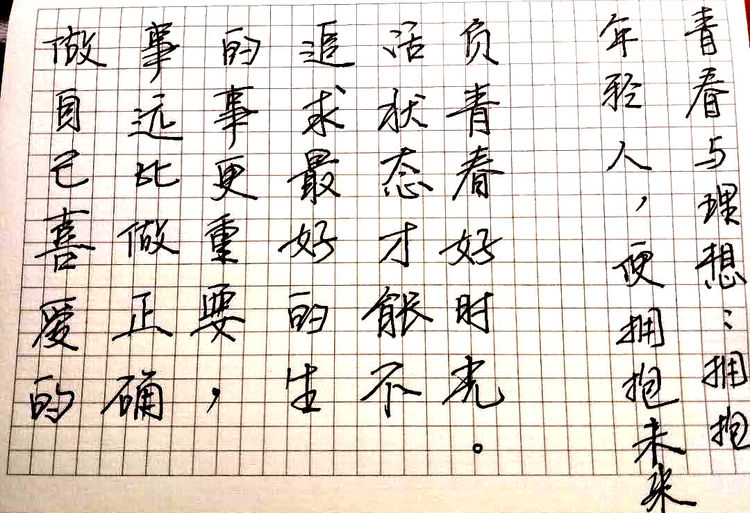 青春与理想：拥抱
年轻人，便拥抱未来
做自己喜爱的
事远比做正确
的事更重要，
追求最好的生
活状态才能不
负青春好时光。